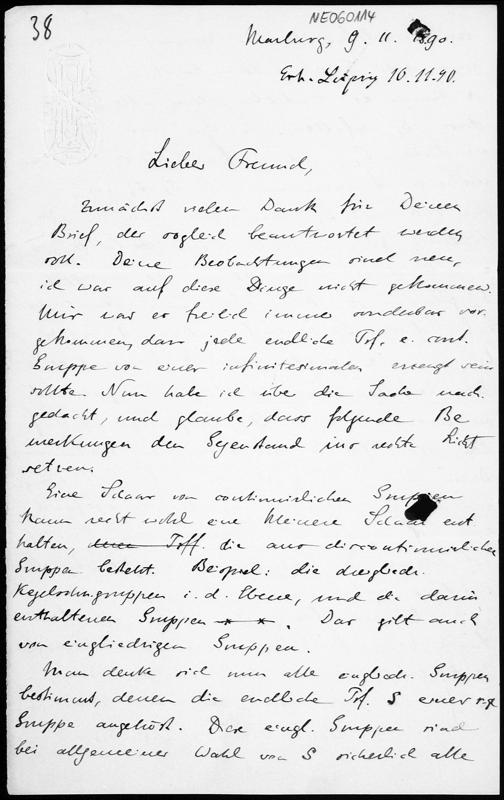 38
NE060114
Marburg, 9. 11. 1890.
Erh. Leipzig 10.11.90.
Lieber Freund,
Zunächst vielen Dank für Deinen
Brief, der sogleich beantwortet werden
soll. Deine Beobachtungen sind neu,
ich war auf diese Dinge nicht gekommen.
Mir war es freilich immer sonderbar vor-
gekommen, dass jede endliche Tsf. e. cont.
Gruppe von einer infinitesimalen erzeugt sein
sollte. Nun habe ich über die Sache nach-
gedacht, und glaube, dass folgende Be
merkungen den Gegenstand ins rechte Licht
setzen.
Eine Schaar von continuirlichen Gruppen
kann recht wohl eine kleinere Schaar ent
halten, die aus discontinuirlichen
Gruppen besteht. Beispiel: die dreiglied.
Kegelschn.gruppen i. d. Ebene, und die darin
enthaltenen Gruppen . Das gilt auch
von eingliedrigen Gruppen.
Man denke sich nun alle eingliedr. Gruppen
bestimmt, denen die endliche Tsf. S einer
Gruppe angehört. Diese eingl. Gruppen sind
bei allgemeiner Wahl von S sicherlich alle